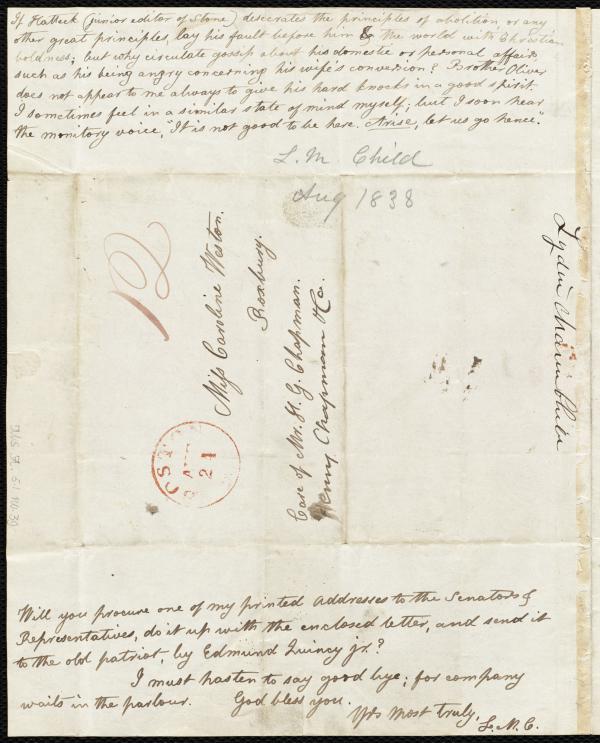 If Halleck (junior editor of Stone) desecrates the principles of abolition, or any
other great principles, lay his fault before him & the world with Christian
boldness; but why circulate gossip about his domestic or personal affairs,
such as his being angry concerning his wife's conversion? Brother Oliver
does not appear to me always to give his hard knocks in a good spirit.
I sometimes feel in a similar state of mind myself; but I soon hear
the monitory voice, "It is not good to be here. Arise, let us go hence."
L. M. Child
Aug 1838
12
Miss Caroline Weston.
Roxbury.
Care of Mr. H. G. Chapman.
Henry Chapman & Co.
BOSTON
21
Lydia Maria Child
Will you procure one of my printed addresses to the Senators &
Representatives, do it up with the enclosed letter, and send it
to the old patriot, by Edmund Quincy jr.?
I must hasten to say good bye; for company
waits in the parlour. God bless you.
Yrs most truly,
L. M. C.